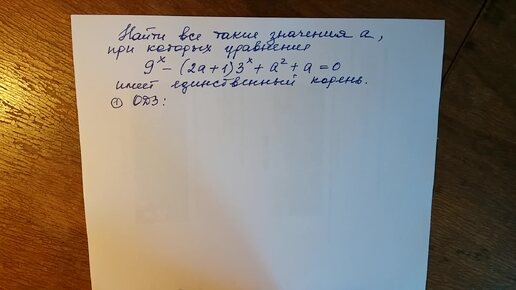 Найти все такие значения a,
при которых уравнения
9ˣ − (2a+1)3ˣ + a² + a = 0
имеет единственный корень.
① ОДЗ: